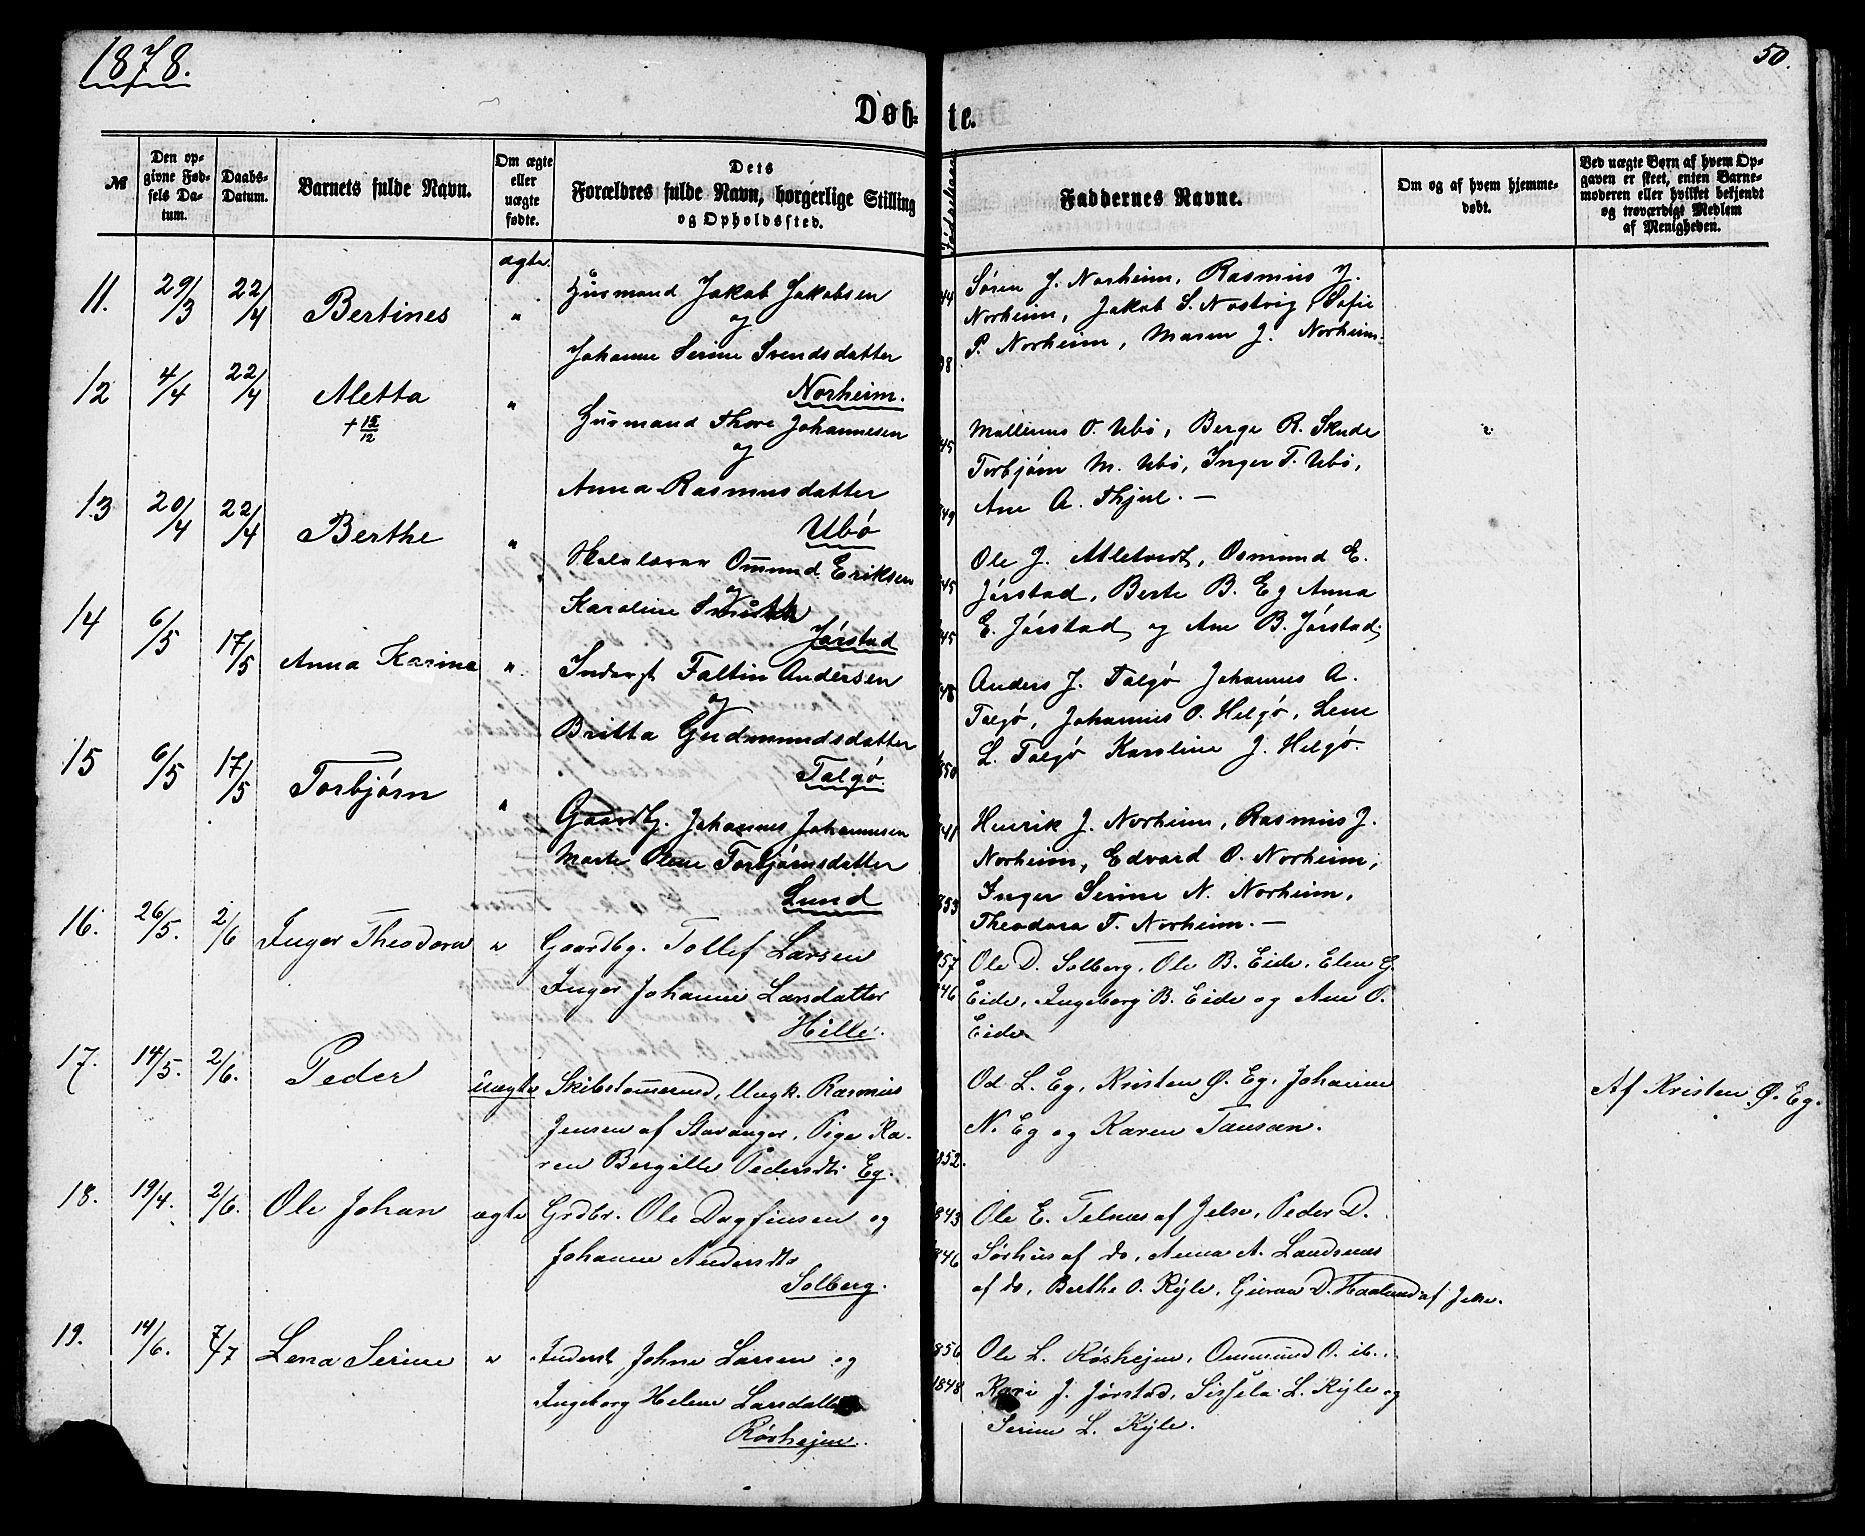 1878.
50.
Døb-
te.
№
Den op-
givne Fød-
sels Da-
tum.
Daabs-
Datum.
Barnets fulde Navn.
Om ægte
eller
uægte
fødte.
Dets
Forældres fulde Navn, borgerlige Stilling
og Opholdssted.
Fødselsaar
Faddernes Navne.
Om og af hvem hjemme-
døbt.
Ved uægte Børn af hvem Op-
gaven er skeet, enten Barne-
moderen eller hvilket bekjendt
og troværdigt Medlem
af Menigheden.
11. 29/3 22/4 Bertines ægte
Husmand Jakob Jakobsen
og
Johanne Serine Svendsdatter
Norheim.
44
38
Søren J. Norheim, Rasmus J.
Norheim, Jakob S. Nostvig, Sofie
P. Norheim, Maren J. Norheim.
12 4/4 22/4 Aletta "
+ 15/12
Husmand Thore Johannesen
og
Anna Rasmusdatter
Ubø
45
49
Mallinus O. Ubø, Berge R. Skude
Torbjørn M. Ubø, Inger T. Ubø,
Ane A. Thjul. —
13 20/4 22/4 Berthe "
Ommund Eriksen
og
Karoline
Jørstad
45
45
Ole J. Atletveit, Osmund E.
Jørstad, Berte B. Eg Anna
E. Jørstad og Ane B. Jørstad.
14 6/5 17/5 Anna Karina "
Inderst Faltin Andersen
og
Britta Gudmundsdatter
Talgø
48
850
Anders J. Talgø Johannes A.
Talgø, Johannes O. Helgø, Lene
L. Talgø Karoline J. Helgø.
15 6/5 17/5 Torbjørn "
Gaardb. Johannes Johannesen
Marte Olene Torbjørnsdatter
Lund
841
853
Henrik J. Norheim, Rasmus J.
Norheim, Edvard O. Norheim,
Inger Serine N. Norheim,
Theodora T. Norheim. —
16. 26/5. 2/6 Inger Theodora "
Gaardbg. Tollef Larsen
Inger Johanne Larsdatter
Hille.
857
846
Ole D. Solberg, Ole B. Eide, Elen G.
Eide, Ingeborg B. Eide og Ane O.
Eide
17. 14/5. 2/6. Peder uægte
Skibstømmermd, Ungk. Rasmus
Jensen af Stavanger, Pige Ka-
ren Bergitte Pedersdtr. Eg.
852.
Od. L. Eg, Kristen Ø. Eg, Johanne
N. Eg og Karen Tausan.
Af Kristen Ø. Eg.
18. 19/4. 2/6. Ole Johan ægte
Grdbr. Ole Dagfinsen og
Johanne Andersdtr
Solberg.
843
846
Ole E. Telnæs af Jelse, Peder D.
Sørhus af do, Anna A. Landsnæs
af do, Berthe O. Kyle, Gurina D. Haaland af Jelse.
19. 14/6. 7/7 Lena Serine "
Inderst Johne Larsen og
Ingeborg Helene Larsdatter
Røshejm.
856
1848
Ole L. Røshejm, Ommund O. ib.,
Kari J. Jørstad, Sissela L. Kyle og
Serine L. Kyle.